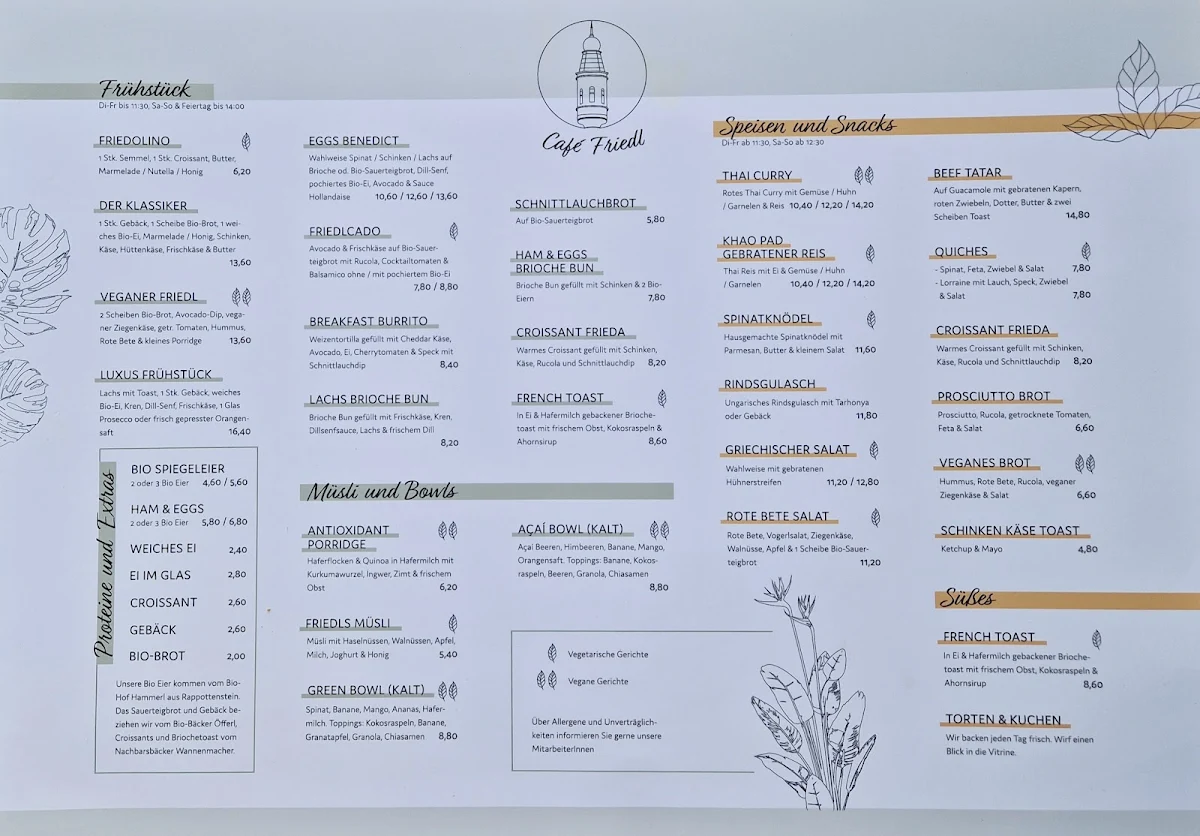 Café Friedl
Frühstück
Di-Fr bis 11:30, Sa-So & Feiertag bis 14:00
FRIEDOLINO
1 Stk. Semmel, 1 Stk. Croissant, Butter,
Marmelade / Nutella / Honig 6,20
DER KLASSIKER
1 Stk. Gebäck, 1 Scheibe Bio-Brot, 1 wei-
ches Bio-Ei, Marmelade / Honig, Schinken,
Käse, Hüttenkäse, Frischkäse & Butter
13,60
VEGANER FRIEDL
2 Scheiben Bio-Brot, Avocado-Dip, vega-
ner Ziegenkäse, getr. Tomaten, Hummus,
Rote Bete & kleines Porridge 13,60
LUXUS FRÜHSTÜCK
Lachs mit Toast, 1 Stk. Gebäck, weiches
Bio-Ei, Kren, Dill-Senf, Frischkäse, 1 Glas
Prosecco oder frisch gepresster Orangen-
saft 16,40
Proteine und Extras
BIO SPIEGELEIER
2 oder 3 Bio Eier 4,60 / 5,60
HAM & EGGS
2 oder 3 Bio Eier 5,80 / 6,80
WEICHES EI 2,40
EI IM GLAS 2,80
CROISSANT 2,60
GEBÄCK 2,60
BIO-BROT 2,00
Unsere Bio Eier kommen vom Bio-
Hof Hammerl aus Rappottenstein.
Das Sauerteigbrot und Gebäck be-
ziehen wir vom Bio-Bäcker Öfferl,
Croissants und Briochetoast vom
Nachbarsbäcker Wannenmacher.
EGGS BENEDICT
Wahlweise Spinat / Schinken / Lachs auf
Brioche od. Bio-Sauerteigbrot, Dill-Senf,
pochiertes Bio-Ei, Avocado & Sauce
Hollandaise 10,60 / 12,60 / 13,60
FRIEDLCADO
Avocado & Frischkäse auf Bio-Sauer-
teigbrot mit Rucola, Cocktailtomaten &
Balsamico ohne / mit pochiertem Bio-Ei
7,80 / 8,80
BREAKFAST BURRITO
Weizentortilla gefüllt mit Cheddar Käse,
Avocado, Ei, Cherrytomaten & Speck mit
Schnittlauchdip 8,40
LACHS BRIOCHE BUN
Brioche Bun gefüllt mit Frischkäse, Kren,
Dillsenfsauce, Lachs & frischem Dill
8,20
SCHNITTLAUCHBROT
Auf Bio-Sauerteigbrot 5,80
HAM & EGGS
BRIOCHE BUN
Brioche Bun gefüllt mit Schinken & 2 Bio-
Eiern 7,80
CROISSANT FRIEDA
Warmes Croissant gefüllt mit Schinken,
Käse, Rucola und Schnittlauchdip 8,20
FRENCH TOAST
In Ei & Hafermilch gebackener Brioche-
toast mit frischem Obst, Kokosraspeln &
Ahornsirup 8,60
Müsli und Bowls
ANTIOXIDANT
PORRIDGE
Haferflocken & Quinoa in Hafermilch mit
Kurkumawurzel, Ingwer, Zimt & frischem
Obst 6,20
FRIEDLS MÜSLI
Müsli mit Haselnüssen, Walnüssen, Apfel,
Milch, Joghurt & Honig 5,40
GREEN BOWL (KALT)
Spinat, Banane, Mango, Ananas, Hafer-
milch. Toppings: Kokosraspeln, Banane,
Granatapfel, Granola, Chiasamen 8,80
AÇAÍ BOWL (KALT)
Açaí Beeren, Himbeeren, Banane, Mango,
Orangensaft. Toppings: Banane, Kokos-
raspeln, Beeren, Granola, Chiasamen
8,80
Vegetarische Gerichte
Vegane Gerichte
Über Allergene und Unverträglich-
keiten informieren Sie gerne unsere
MitarbeiterInnen
Speisen und Snacks
Di-Fr ab 11:30, Sa-So ab 12:30
THAI CURRY
Rotes Thai Curry mit Gemüse / Huhn
/ Garnelen & Reis 10,40 / 12,20 / 14,20
KHAO PAD
GEBRATENER REIS
Thai Reis mit Ei & Gemüse / Huhn
/ Garnelen 10,40 / 12,20 / 14,20
SPINATKNÖDEL
Hausgemachte Spinatknödel mit
Parmesan, Butter & kleinem Salat 11,60
RINDSGULASCH
Ungarisches Rindsgulasch mit Tarhonya
oder Gebäck 11,80
GRIECHISCHER SALAT
Wahlweise mit gebratenen
Hühnerstreifen 11,20 / 12,80
ROTE BETE SALAT
Rote Bete, Vogerlsalat, Ziegenkäse,
Walnüsse, Apfel & 1 Scheibe Bio-Sauer-
teigbrot 11,20
BEEF TATAR
Auf Guacamole mit gebratenen Kapern,
roten Zwiebeln, Dotter, Butter & zwei
Scheiben Toast 14,80
QUICHES
- Spinat, Feta, Zwiebel & Salat 7,80
- Lorraine mit Lauch, Speck, Zwiebel
& Salat 7,80
CROISSANT FRIEDA
Warmes Croissant gefüllt mit Schinken,
Käse, Rucola und Schnittlauchdip 8,20
PROSCIUTTO BROT
Prosciutto, Rucola, getrocknete Tomaten,
Feta & Salat 6,60
VEGANES BROT
Hummus, Rote Bete, Rucola, veganer
Ziegenkäse & Salat 6,60
SCHINKEN KÄSE TOAST
Ketchup & Mayo 4,80
Süßes
FRENCH TOAST
In Ei & Hafermilch gebackener Brioche-
toast mit frischem Obst, Kokosraspeln &
Ahornsirup 8,60
TORTEN & KUCHEN
Wir backen jeden Tag frisch. Wirf einen
Blick in die Vitrine.